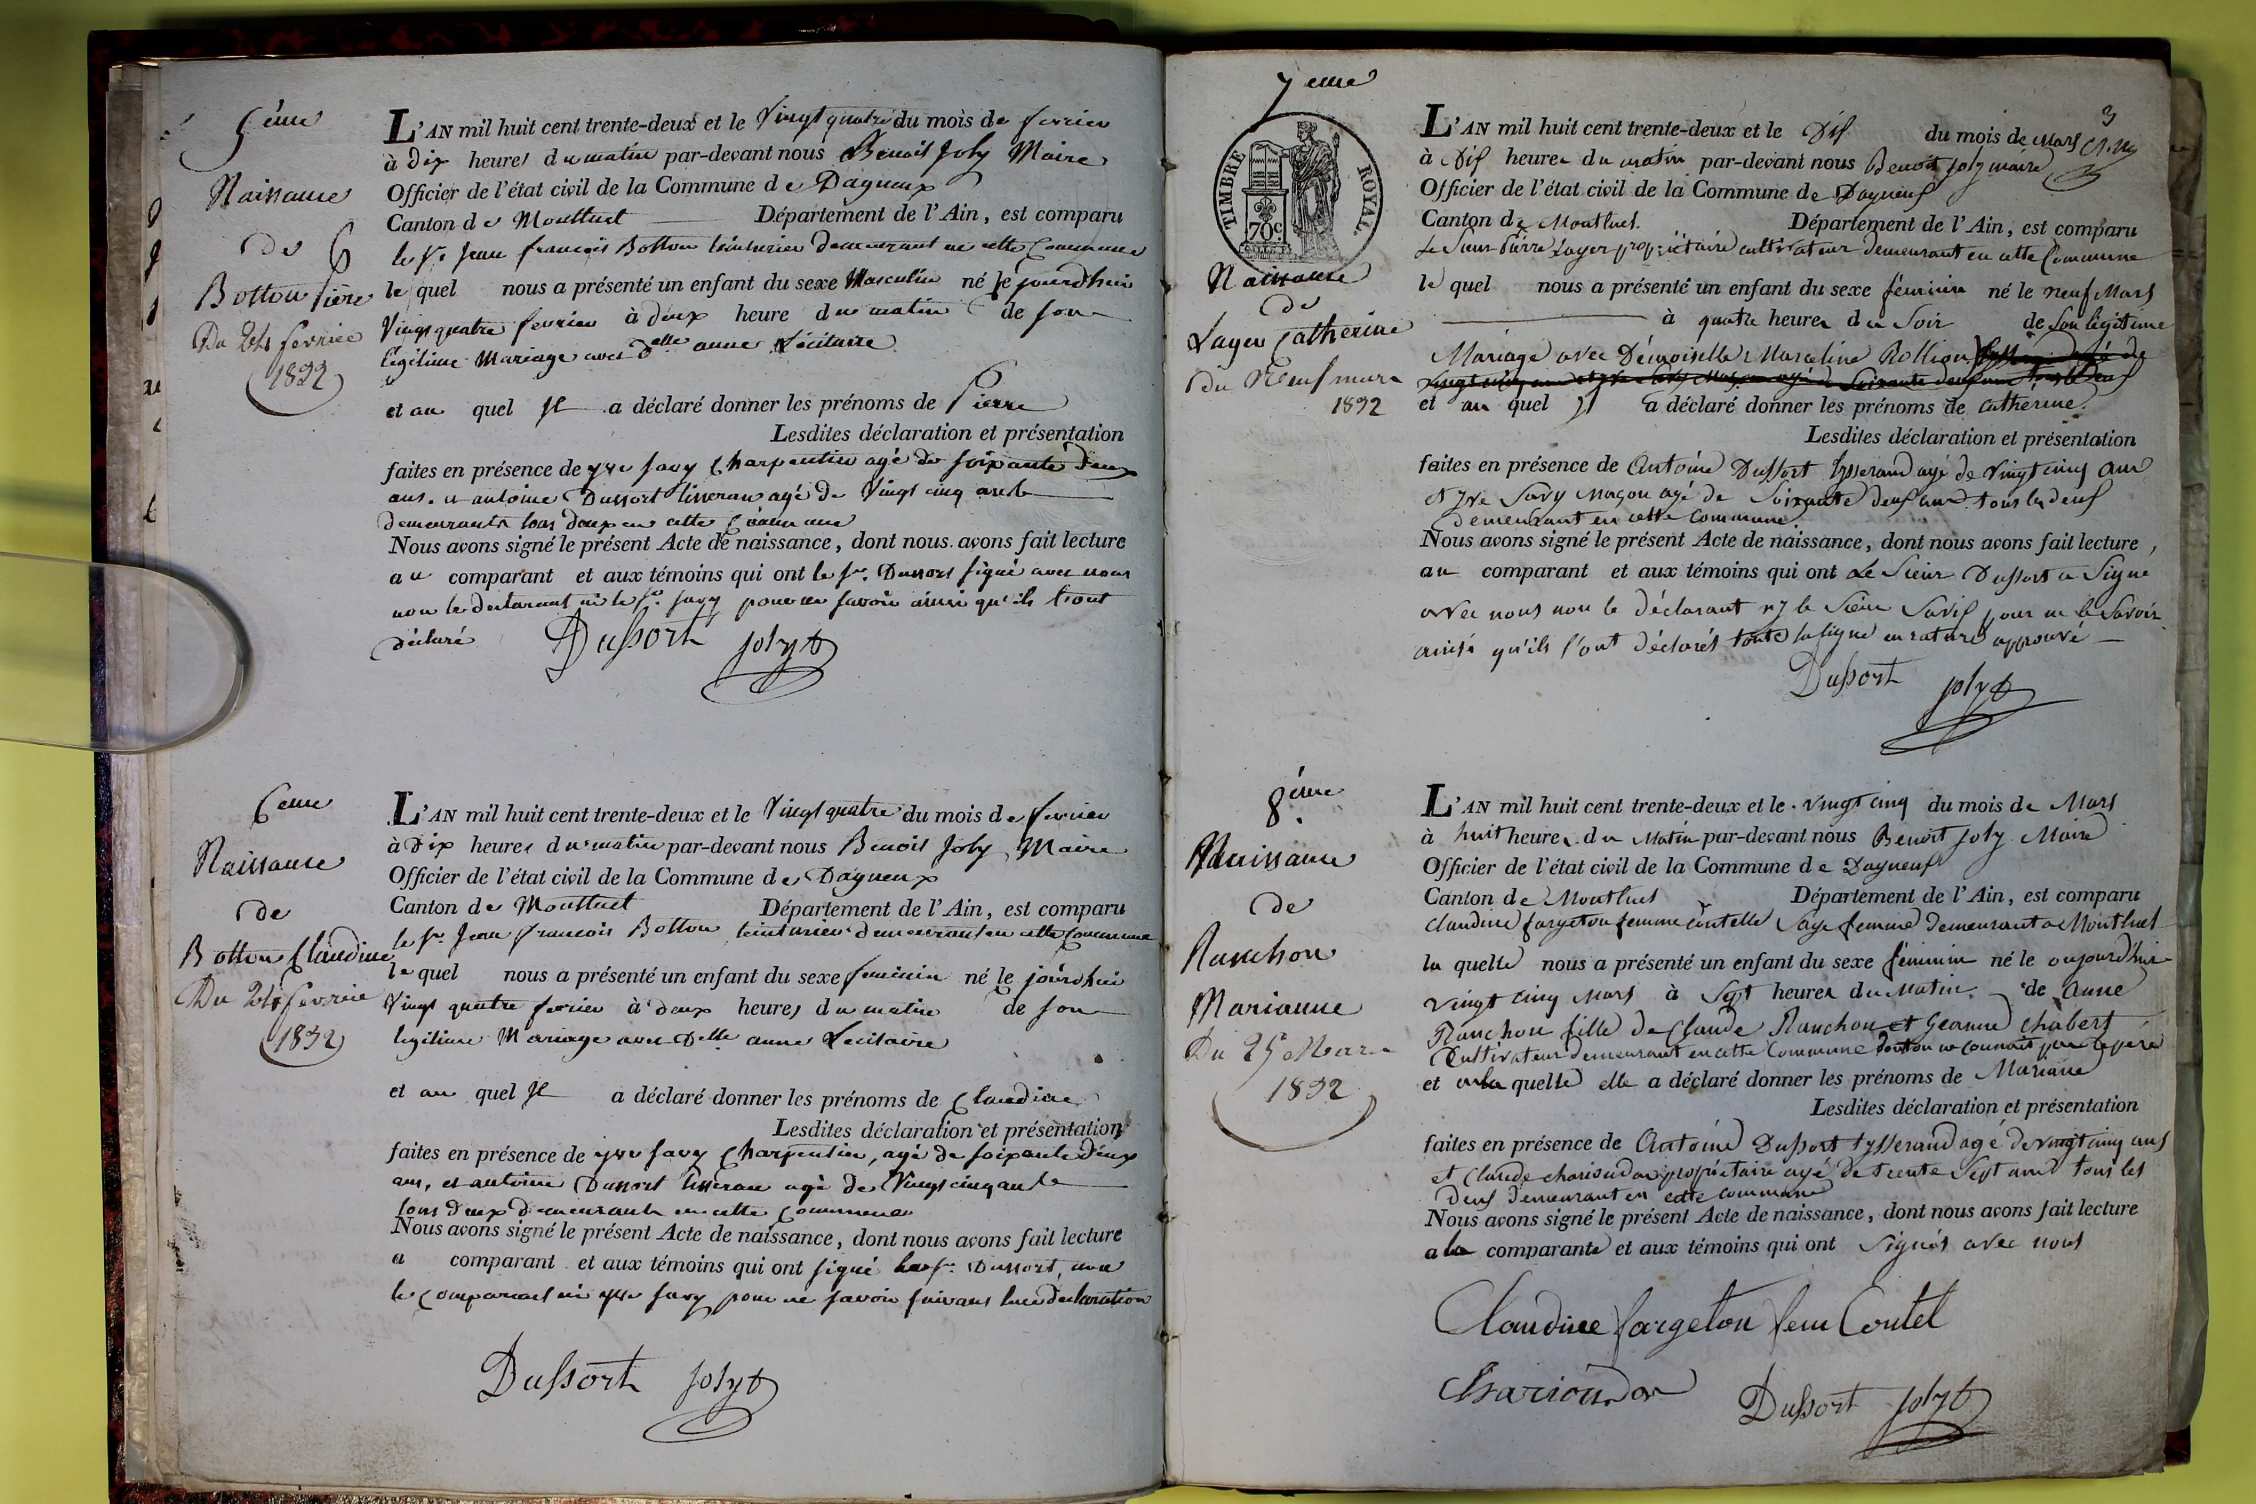 5ème
Naissance
de
Botton Pierre
Du 24 fevrier
1832
L'AN mil huit cent trente-deux et le Vingt quatre du mois de fevrier
à dix heures du matin par-devant nous Benoit Joly Maire
Officier de l'état civil de la Commune de Dagneux
Canton de Montluel Département de l'Ain, est comparu
le Sr. Jean françois Botton teinturier demeurant en cette Commune
le quel nous a présenté un enfant du sexe Masculin né le jourdhui
Vingt quatre fevrier à deux heure du matin de son
légitime Mariage avec Delle anne Lécitaire
et au quel Il a déclaré donner les prénoms de Pierre
Lesdites déclaration et présentation
faites en présence de yve Savy Charpentier agé de soixante deux
ans. et antoine Dussort tisseran agé de Vingt cinq ans
demeurants tous deux en cette Commune
Nous avons signé le présent Acte de naissance, dont nous avons fait lecture
au comparant et aux témoins qui ont le Sr. Dussort signé avec nous
non le declarant ni le Sr. Savy pour ne savoir ainsi qu'ils l'ont
déclaré Dussort joly
6eme
Naissance
de
Botton Claudine
Du 24 fevrier
1832
L'AN mil huit cent trente-deux et le Vingt quatre du mois de fevrier
à Dix heures du matin par-devant nous Benoit Joly Maire
Officier de l'état civil de la Commune de Dagneux
Canton de Montluel Département de l'Ain, est comparu
le Sr. Jean françois Botton teinturier demeurant en cette Commune
le quel nous a présenté un enfant du sexe feminin né le jourdhui
Vingt quatre fevrier à deux heures du matin de son
legitime Mariage avec Delle anne Lecitaire
et au quel Il a déclaré donner les prénoms de Claudine
Lesdites déclaration et présentation
faites en présence de yve Savy Charpentier, agé de soixante deux
ans, et antoine Dussort tisseran agé de Vingt cinq ans
tous deux demeurants en cette Commune
Nous avons signé le présent Acte de naissance, dont nous avons fait lecture
a comparant et aux témoins qui ont signé le Sr. Dussort, non
le Comparant ni yve Savy pour ne savoir suivant leur declaration
Dussort joly
7eme
TIMBRE ROYAL
70c.
Naissance
de
Layer Catherine
du Neuf mars
1832
3
L'AN mil huit cent trente-deux et le Dix du mois de Mars
à Dix heures du matin par-devant nous Benoit Joly maire
Officier de l'état civil de la Commune de Dagneux
Canton de Montluel. Département de l'Ain, est comparu
Le Sieur Pierre Layer propriétaire cultivateur demeurant en cette Commune
le quel nous a présenté un enfant du sexe féminin né le neuf Mars
à quatre heures du Soir de Son légitime
Mariage avec Démoiselle Marceline Rollion
et au quel il a déclaré donner les prénoms de Catherine.
Lesdites déclaration et présentation
faites en présence de Antoine Dussort tysserand agé de Vingt cinq ans
et yve Savy Maçon agé de Soixante deux ans tous les deux
demeurant en cette Commune
Nous avons signé le présent Acte de naissance, dont nous avons fait lecture,
au comparant et aux témoins qui ont Le Sieur Dussort a Signé
avec nous non le déclarant ny le Sieur Savy pour ne le Savoir
ainsi qu'ils l'ont déclarés toute la ligne en rature approuvé
Dussort joly
8.ème
Naissance
de
Ranchon
Marianne
Du 25 Mars
1832
L'AN mil huit cent trente-deux et le vingt cinq du mois de Mars
à huit heures du Matin par-devant nous Benoit Joly Maire
Officier de l'état civil de la Commune de Dagneux
Canton de Montluel Département de l'Ain, est comparu
Claudine fargeton femme Contelle Sage femme demeurant a Montluel
la quelle nous a présenté un enfant du sexe féminin né le aujourd'hui
vingt cinq Mars à Sept heures du Matin. de Anne
Ranchon fille de Claude Ranchon et Geanne Chabert
Cultivateur demeurant en cette Commune dont on ne connait pas le père
et a la quelle elle a déclaré donner les prénoms de Mariane
Lesdites déclaration et présentation
faites en présence de Antoine Dussort tysserand agé de vingt cinq ans
et Claude Chariondor propriétaire agé de trente Sept ans tous les
deux demeurant en cette commune
Nous avons signé le présent Acte de naissance, dont nous avons fait lecture
a la comparante et aux témoins qui ont Signés avec nous
Claudine fargeton fem Contel
Chariondor Dussort joly